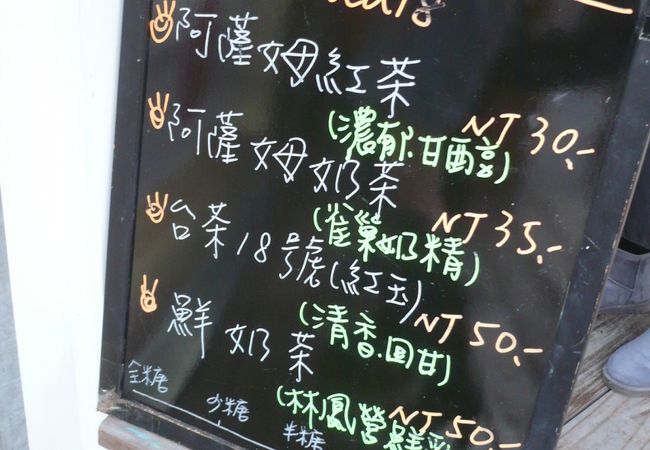 阿薩姆紅茶
(濃郁.甘醇) NT 30.-
阿薩姆奶茶
(雀巢奶精) NT 35.-
台茶18號(紅玉)
(清香.回甘) NT 50.-
鮮奶茶
(林鳳營鮮 NT 50.-
全糖 少糖 半糖